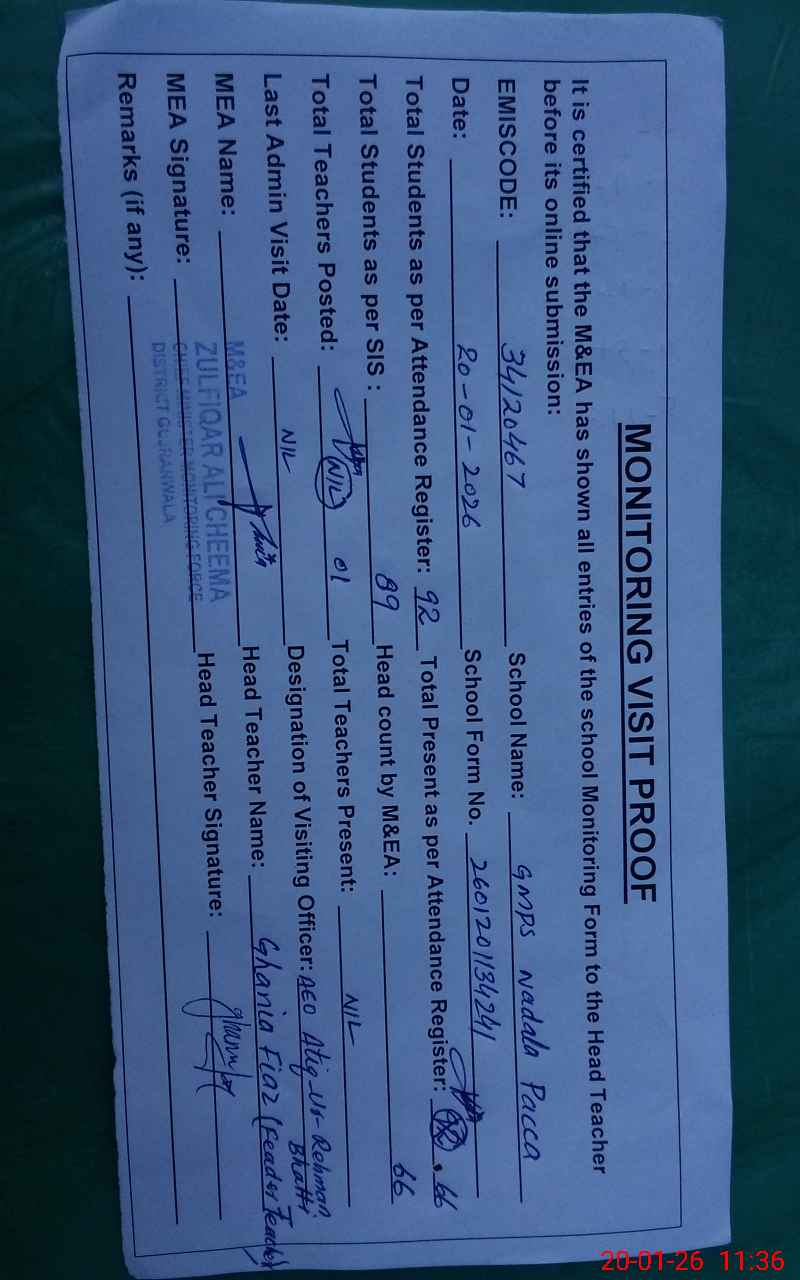 MONITORING VISIT PROOF
It is certified that the M&EA has shown all entries of the school Monitoring Form to the Head Teacher
before its online submission:
EMISCODE: 34120467 School Name: GMPS Nadala Pacca
Date: 20-01-2026 School Form No. 2601201134241
Total Students as per Attendance Register: 92 Total Present as per Attendance Register: 66
Total Students as per SIS : 89 Head count by M&EA: 66
Total Teachers Posted: NIL 01 Total Teachers Present: NIL
Last Admin Visit Date: NIL Designation of Visiting Officer: AEO Atiq-Ur-Rehman Bhatti
MEA Name: Head Teacher Name: Ghania Fiaz (Feader Teacher)
MEA Signature: Head Teacher Signature:
Remarks (if any):
M&EA
ZULFIQAR ALI CHEEMA
CHIEF MINISTER MONITORING FORCE
DISTRICT GUJRANWALA
20-01-26 11:36